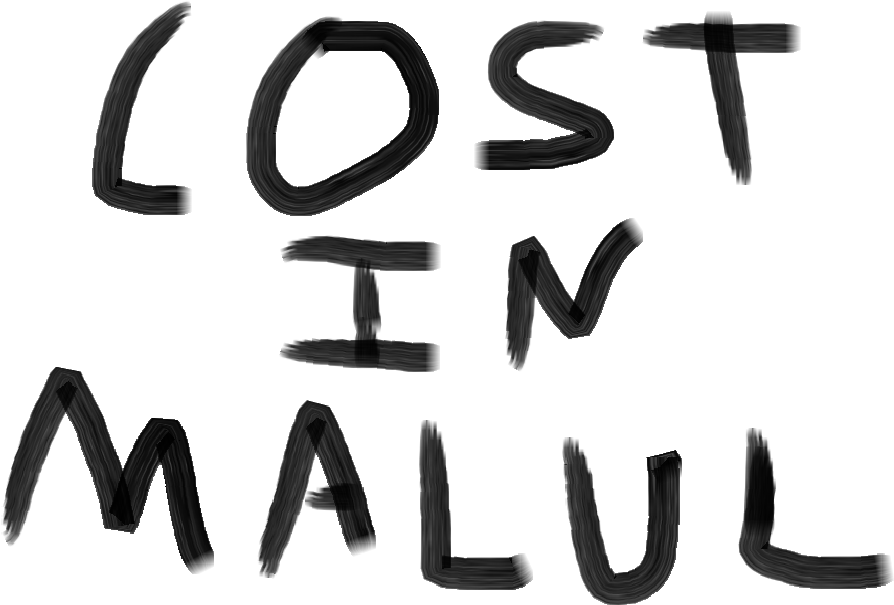 LOST
IN
MALUL